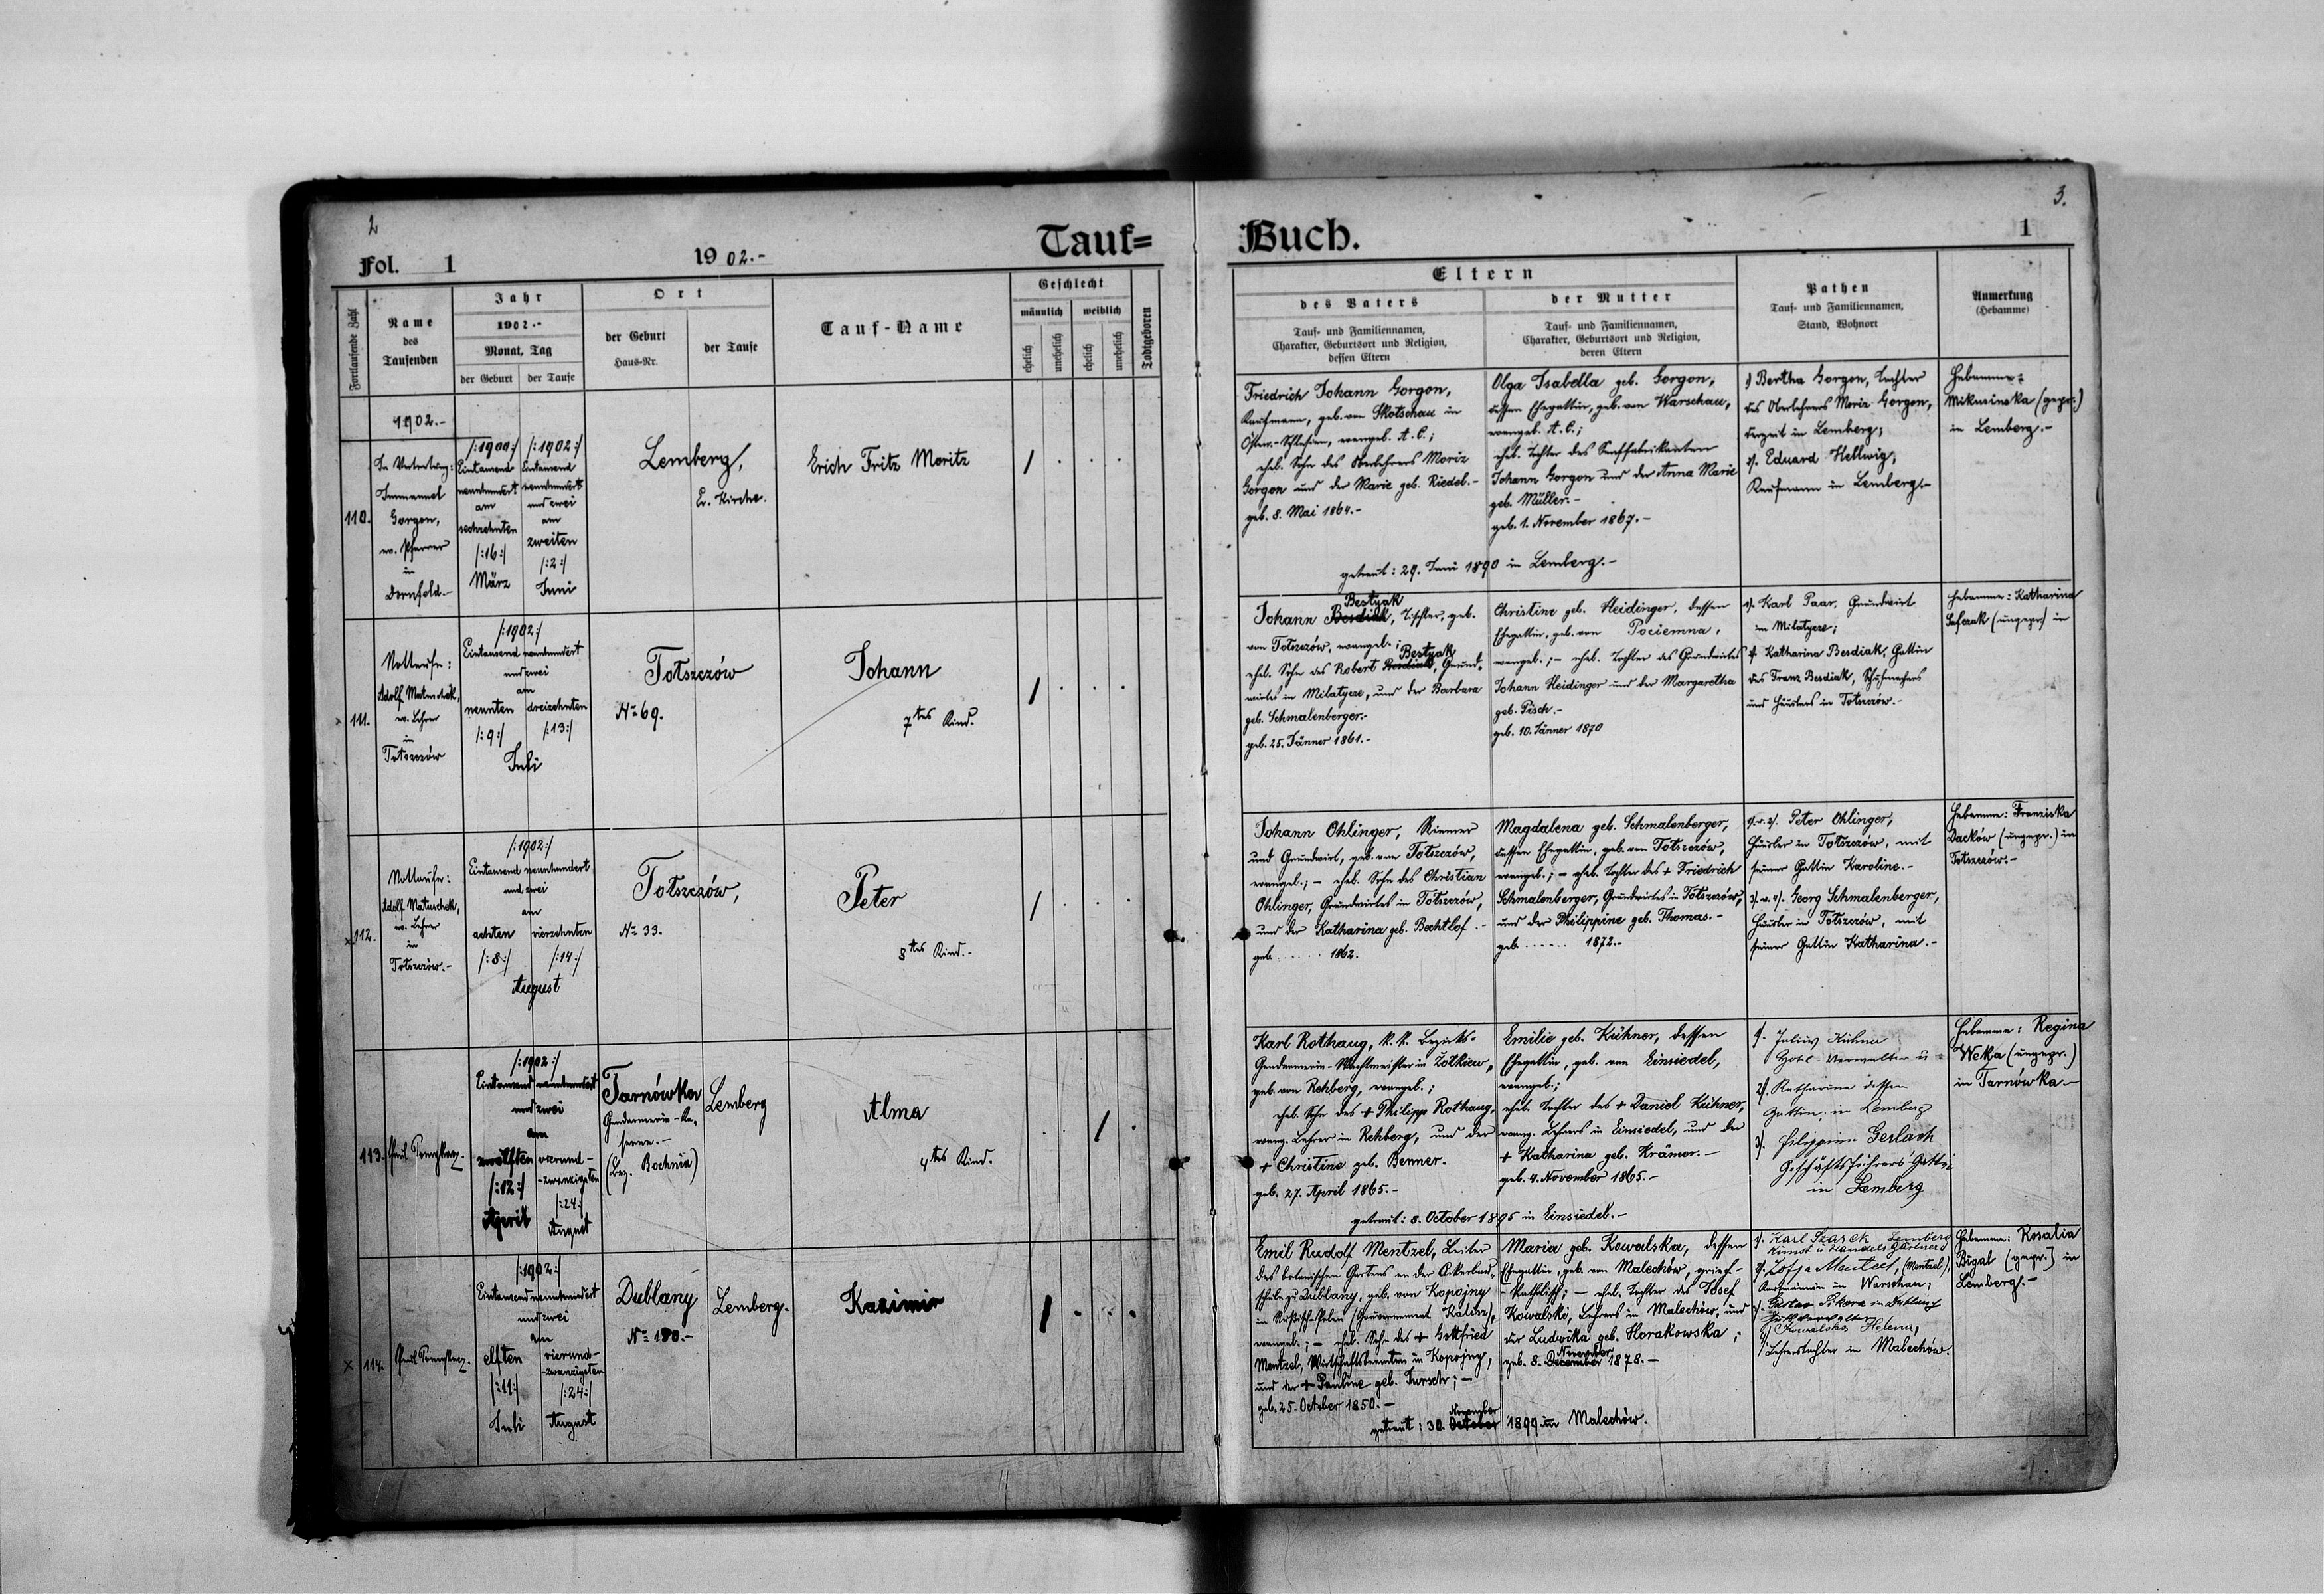 2
3.
Fol. 1
1902.-
Tauf=
Buch.
1
Fortlaufende Zahl
Name
des
Taufenden
Jahr
1902.-
Monat, Tag
der Geburt
der Taufe
Ort
der Geburt
Haus-Nr.
der Taufe
Tauf-Name
Geschlecht
männlich
weiblich
ehelich
unehelich
ehelich
unehelich
Todtgeboren
Eltern
des Vaters
Tauf- und Familiennamen,
Charakter, Geburtsort und Religion,
dessen Eltern
der Mutter
Tauf- und Familiennamen,
Charakter, Geburtsort und Religion,
deren Eltern
Pathen
Tauf- und Familiennamen,
Stand, Wohnort
Anmerkung
(Hebamme)
1902.-
110.
In Vertretung:
Immanuel
Gorgon,
ev. Pfarrer
in
Dornfeld.-
/:1900:/
Eintausend
neunhundert
am
sechzehnten
/:16:/
März
/:1902:/
Eintausend
neunhundert
und zwei
am
zweiten
/:2:/
Juni
Lemberg,
Ev. Kirche.
Erich Fritz Moritz
Friedrich Johann Gorgon,
Kaufmann, geb. von Skotschau in
Österr.-Schlesien, evangel. A. C.;
ehel. Sohn des Oberlehrers Moriz
Gorgon und der Marie geb. Riedel.-
geb. 8. Mai 1864.-
Olga Isabella geb. Gorgon,
dessen Ehegattin, geb. von Warschau,
evangel. A. C.;
ehel. Tochter des Senffabrikanten
Johann Gorgon und der Anna Marie
geb. Müller.-
geb. 1. November 1867.-
getraut: 29. Juni 1890 in Lemberg.-
1) Bertha Gorgon, Tochter
des Oberlehrers Moriz Gorgon,
derzeit in Lemberg;
2). Eduard Hellwig,
Kaufmann in Lemberg.-
Hebamme:
Mikusinska (gepr.)
in Lemberg.-
x 111.
Nottaufe:
Adolf Matuschek,
ev. Lehrer
in
Totszczów
/:1902:/
Eintausend neunhundert
und zwei
am
neunten
/:9:/
dreizehnten
/:13:/
Juli
Totszczów
No 69.
Johann
7tes Kind.
Bestyak
Johann Berdiak, Tischler, geb.
von Totszczów, evangel.;
Bestyak
ehel. Sohn des Robert Berdiak, Grund-
wirtes in Milatycze, und der Barbara
geb. Schmalenberger.-
geb. 25. Jänner 1861.-
Christine geb. Heidinger, dessen
Ehegattin, geb. von Pociemna,
evangel.;- ehel. Tochter des Grundwirtes
Johann Heidinger und der Margaretha
geb. Pisch.-
geb. 10. Jänner 1870
1). Karl Paar, Grundwirt
in Milatycze;
2). Katharina Berdiak, Gattin
des Franz Berdiak, Schuhmachers
und Häuslers in Totszczów.-
Hebamme: Katharina
Safczak (ungepr.) in
x 112.
Nottaufe:
Adolf Matuschek,
ev. Lehrer
in
Totszczów.-
/:1902:/
Eintausend neunhundert
und zwei
am
achten
/:8:/
vierzehnten
/:14:/
August
Totszczów,
No 33.
Peter
8tes Kind.-
Johann Ohlinger, Riemer
und Grundwirt, geb. von Totszczów,
evangel.;- ehel. Sohn des Christian
Ohlinger, Grundwirtes in Totszczów,
und der Katharina geb. Bechtlof.-
geb. ...... 1862.
Magdalena geb. Schmalenberger,
dessen Ehegattin, geb. von Totszczów,
evangel.;- ehel. Tochter des + Friedrich
Schmalenberger, Grundwirtes in Totszczów,
und der Philippine geb. Thomas.-
geb. ...... 1872.-
1). u. 2). Peter Ohlinger,
Häusler in Totszczów, mit
seiner Gattin Karoline.-
3). u. 4). Georg Schmalenberger,
Häusler in Totszczów, mit
seiner Gattin Katharina.-
Hebamme: Franziska
Daców (ungepr.) in
Totszczów.-
113.
/:1902:/
Eintausend neunhundert
und zwei
am
zwölften
/:12:/
April
vierund-
-zwanzigsten
/:24:/
August
Tarnówka
Gendarmerie-Ka-
serne.-
(Bez. Bochnia)
Lemberg
Alma
4tes Kind.
Karl Rothaug, k. k. Bezirks-
Gendarmerie-Wachtmeister in Zolkiew,
geb. von Rehberg, evangel.;
ehel. Sohn des + Philipp Rothaug,
evang. Lehrer in Rehberg, und der
+ Christine geb. Benner.
geb. 27. April 1865.-
Emilie geb. Kühner, dessen
Ehegattin, geb. von Einsiedel,
evangel.;
ehel. Tochter des + Daniel Kühner,
evang. Lehrers in Einsiedel, und der
+ Katharina geb. Krämer.-
geb. 4. November 1865.-
getraut: 8. October 1895 in Einsiedel.-
1). Julius Kühner
Hotel-Verwalter u.
2). Katharina dessen
Gattin, in Lemberg
3). Filippine Gerlach
Geschäftsführers Gattin
in Lemberg
Hebamme: Regina
Weka (ungepr.)
in Tarnówka.-
x 114.
/:1902:/
Eintausend neunhundert
und zwei
am
elften
/:11:/
Juli
vierund-
-zwanzigsten
/:24:/
August
Dublany
No 180.-
Lemberg.
Kazimir
Emil Rudolf Mentzel, Leiter
des botanischen Gartens an der Ackerbau-
schule zu Dublany, geb. von Kopojny
in Russisch-Polen (Gouvernement Kalisz),
evangel.;- ehel. Sohn des + Gottfried
Mentzel, Wirtschaftsbeamten in Kopojny,
und der + Pauline geb. Jursch;-
geb. 25. October 1850.-
Maria geb. Kowalska, dessen
Ehegattin, geb. von Malechów, griech-
-katholisch;- ehel. Tochter des Josef
Kowalski, Lehrers in Malechów, und
der Ludwika geb. Horakowska;
November
geb. 8. December 1878.-
November
getraut: 30. October 1899 in Malechów.
1). Karl Skarek Lemberg
Kunst u Handels Gärtner
2). Zofja Mentzel, (Mentzel),
Kaufmännin in Warschau;
3). Gustav Sikora in Dublany
Gutsverwalter
4) Kowalska Helena,
Lehrerstochter in Malechów.
Hebamme: Rosalia
Bigal (gepr.) in
Lemberg.-